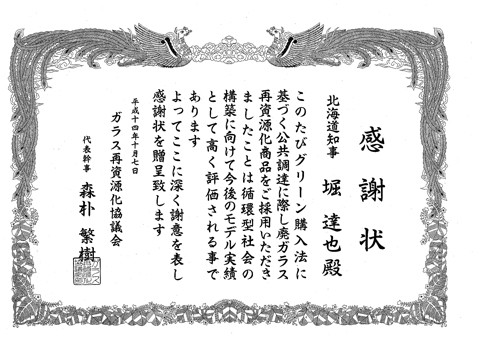 感謝状
北海道知事 堀 達也殿
このたびグリーン購入法に
基づく公共調達に際し廃ガラス
再資源化商品をご採用いただき
ましたことは循環型社会の
構築に向けて今後のモデル実績
として高く評価される事で
あります
よってここに深く謝意を表し
感謝状を贈呈致します
平成十四年十月七日
ガラス再資源化協議会
代表幹事 森朴 繁樹